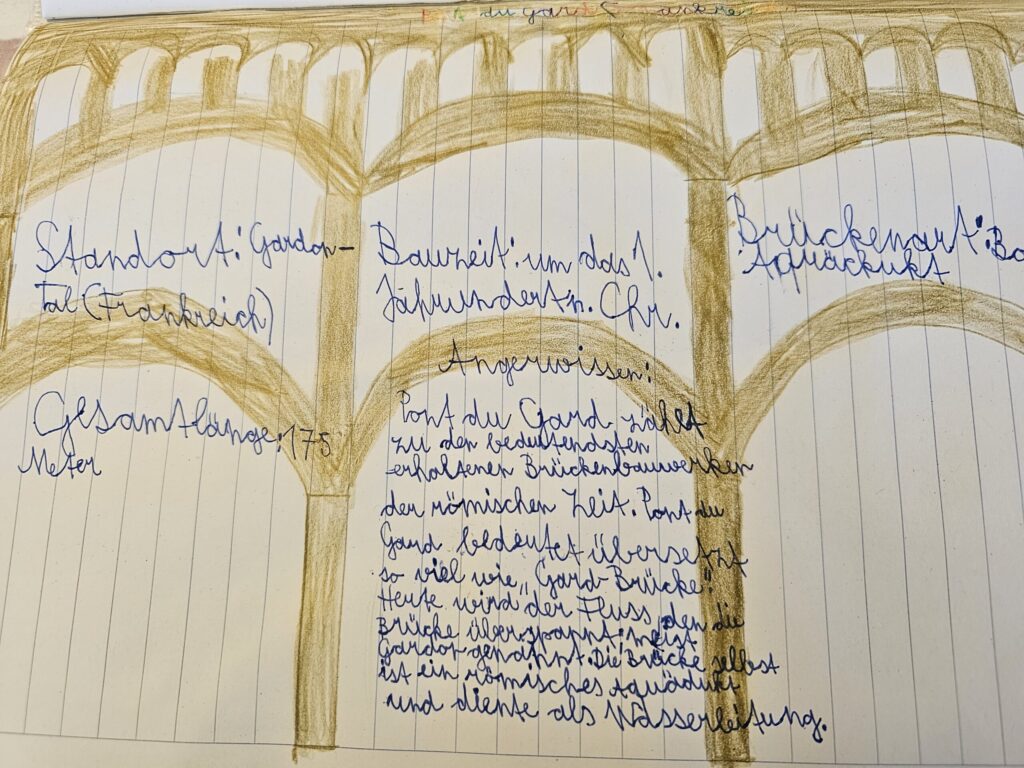 Standort: Gardon-
Tal (Frankreich)
Gesamtlänge: 175
Meter
Bauzeit: um das 1.
Jahrundert n. Chr.
Angerwissen:
Pont du Gard zählt
zu den bedeutendsten
erhaltenen Brückenbauwerken
der römischen Zeit. Pont du
Gard bedeutet übersetzt
so viel wie „Gard-Brücke".
Heute wird der Fluss, den die
Brücke überspannt, meist
Gardon genannt. Die Brücke selbst
ist ein römisches Aquädukt
und diente als Wasserleitung.
Brückenart: Bo
Aquäduckt